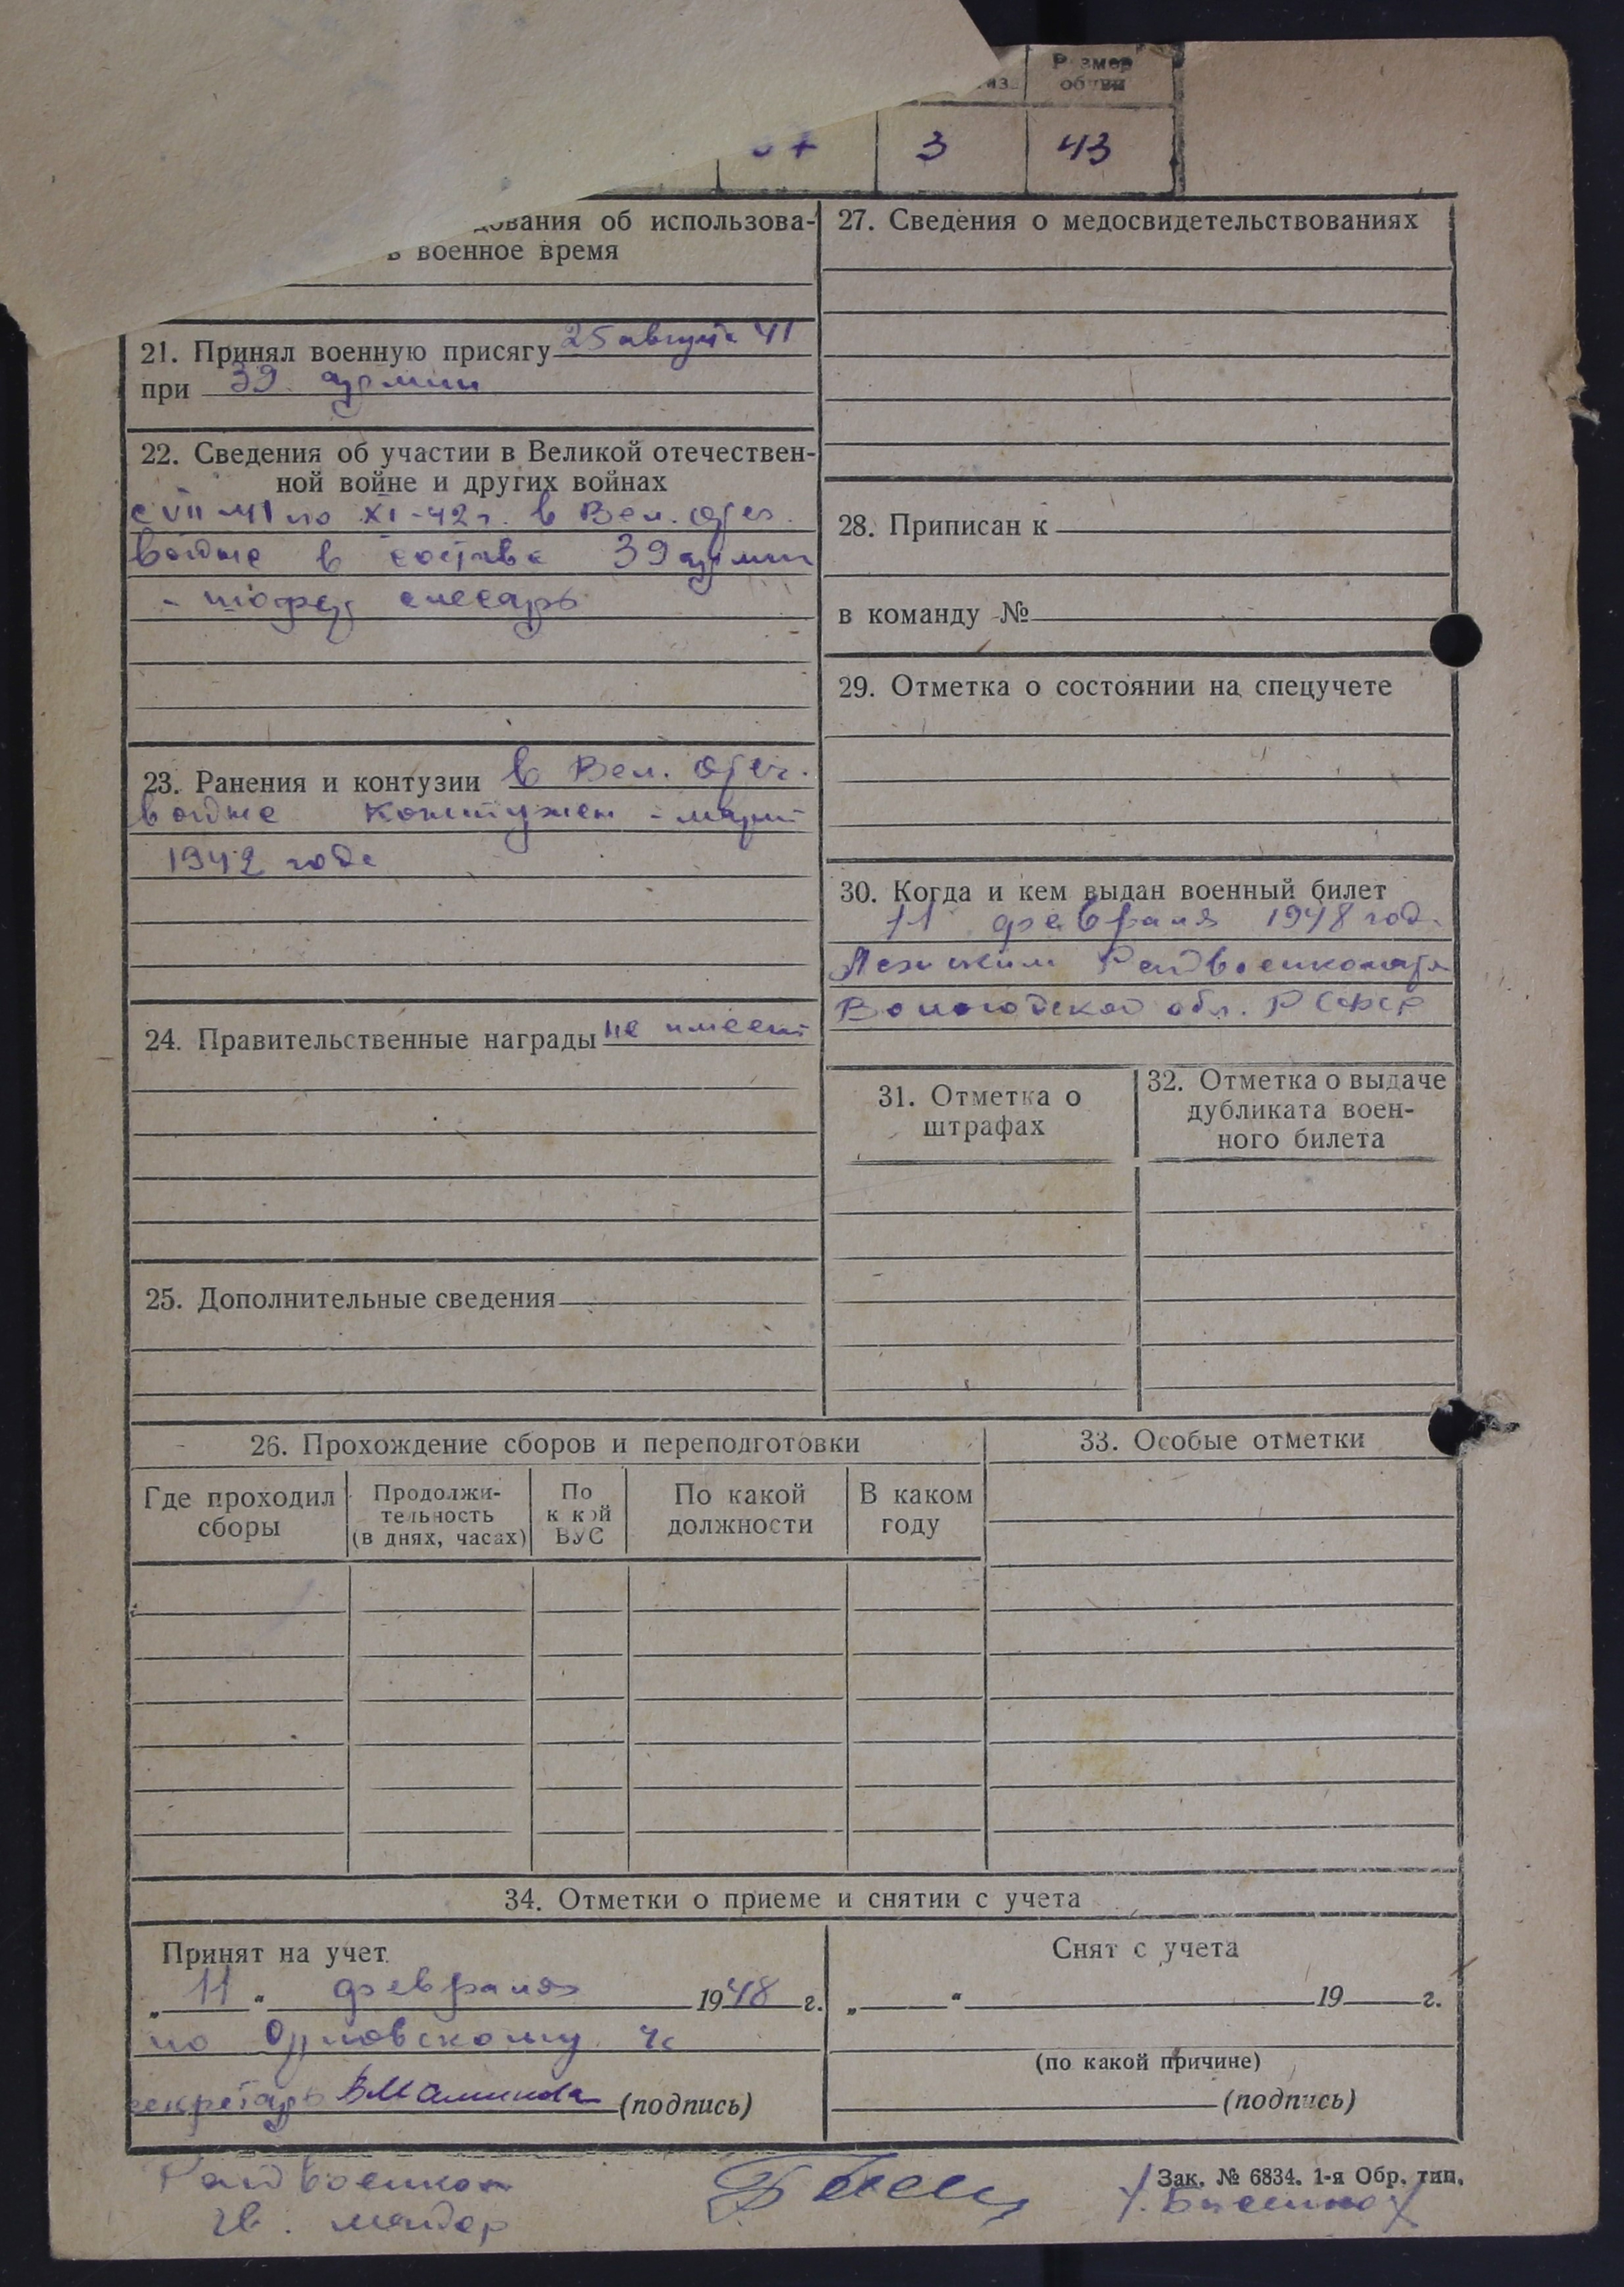 Размер
обуви
3 43
дования об использова-
в военное время
21. Принял военную присягу 25 августа 41
при 39 армии
22. Сведения об участии в Великой отечествен-
ной войне и других войнах
с VII-41 по XI-42 г. в Вел. Отеч.
войне в составе 39 армии
- шофер слесарь
23. Ранения и контузии в Вел. Отеч.
войне Контужен - март
1942 года
24. Правительственные награды не имеет
25. Дополнительные сведения
27. Сведения о медосвидетельствованиях
28. Приписан к
в команду №
29. Отметка о состоянии на спецучете
30. Когда и кем выдан военный билет
11 февраля 1948 год
Райвоенкомат
Вологодской обл. РСФСР
31. Отметка о
штрафах
32. Отметка о выдаче
дубликата воен-
ного билета
26. Прохождение сборов и переподготовки
Где проходил
сборы
Продолжи-
тельность
(в днях, часах)
По
к кой
ВУС
По какой
должности
В каком
году
33. Особые отметки
34. Отметки о приеме и снятии с учета
Принят на учет
„ 11 “ февраля 1948 г.
по Орловскому ч/с
секретарь (подпись)
Снят с учета
„ “ 19 г.
(по какой причине)
(подпись)
Зак. № 6834. 1-я Обр. тип.
Райвоенком
гв. майор